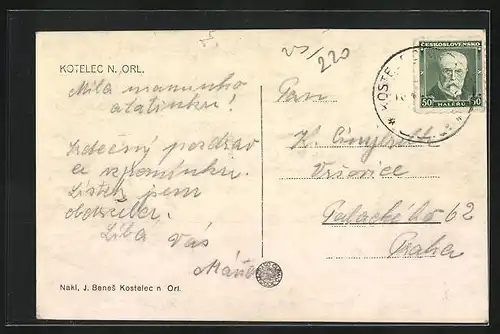 KOTELEC N. ORL.
vs/220
Milá maminko
a tatínku!
Srdečný pozdrav
a vzpomínku.
Lístek jsem
obdržela.
Líbá Vás
Máňa
Nakl. J. Beneš Kostelec n Orl.
Pan
K.
Vršovice
Palackého 62
Praha
ČESKOSLOVENSKO
50 50
HALÉŘŮ